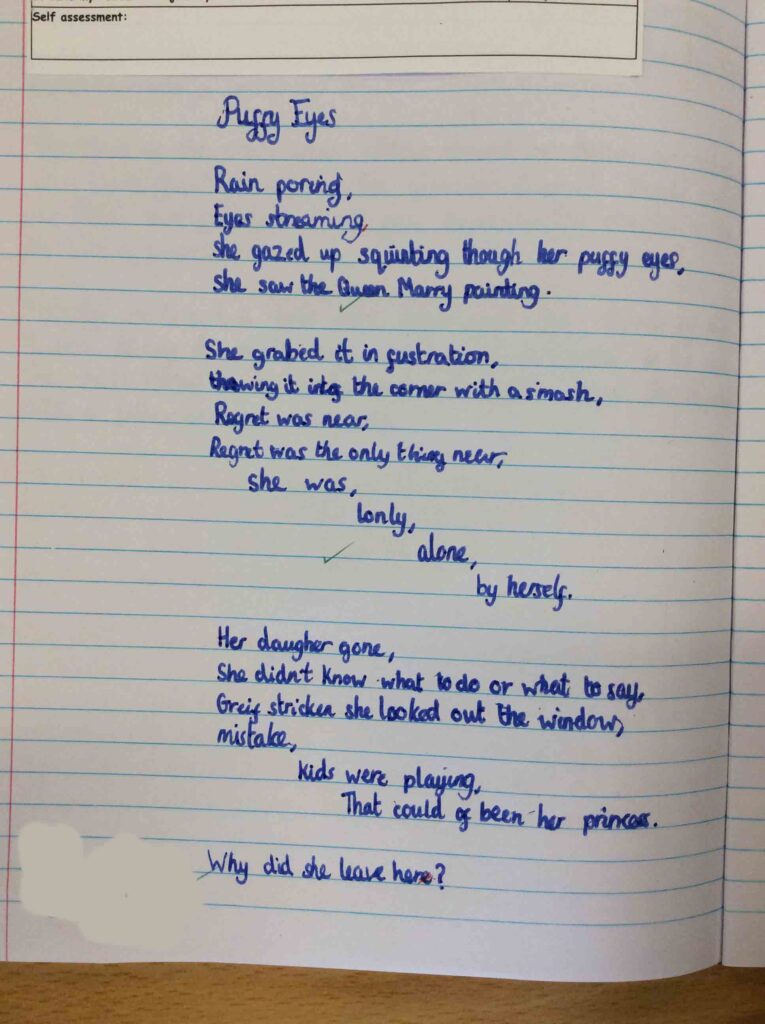 Self assessment:
Puffy Eyes
Rain poring,
Eyes streaming,
she gazed up squinting though her puffy eyes,
she saw the Queen Marry painting.
She grabed it in fustration,
throwing it into the corner with a smash,
Regret was near,
Regret was the only thing near,
she was,
lonly,
alone,
by herself.
Her daugher gone,
She didn't know what to do or what to say,
Greif stricken she looked out the window,
mistake,
kids were playing,
That could of been her princess.
Why did she leave here?